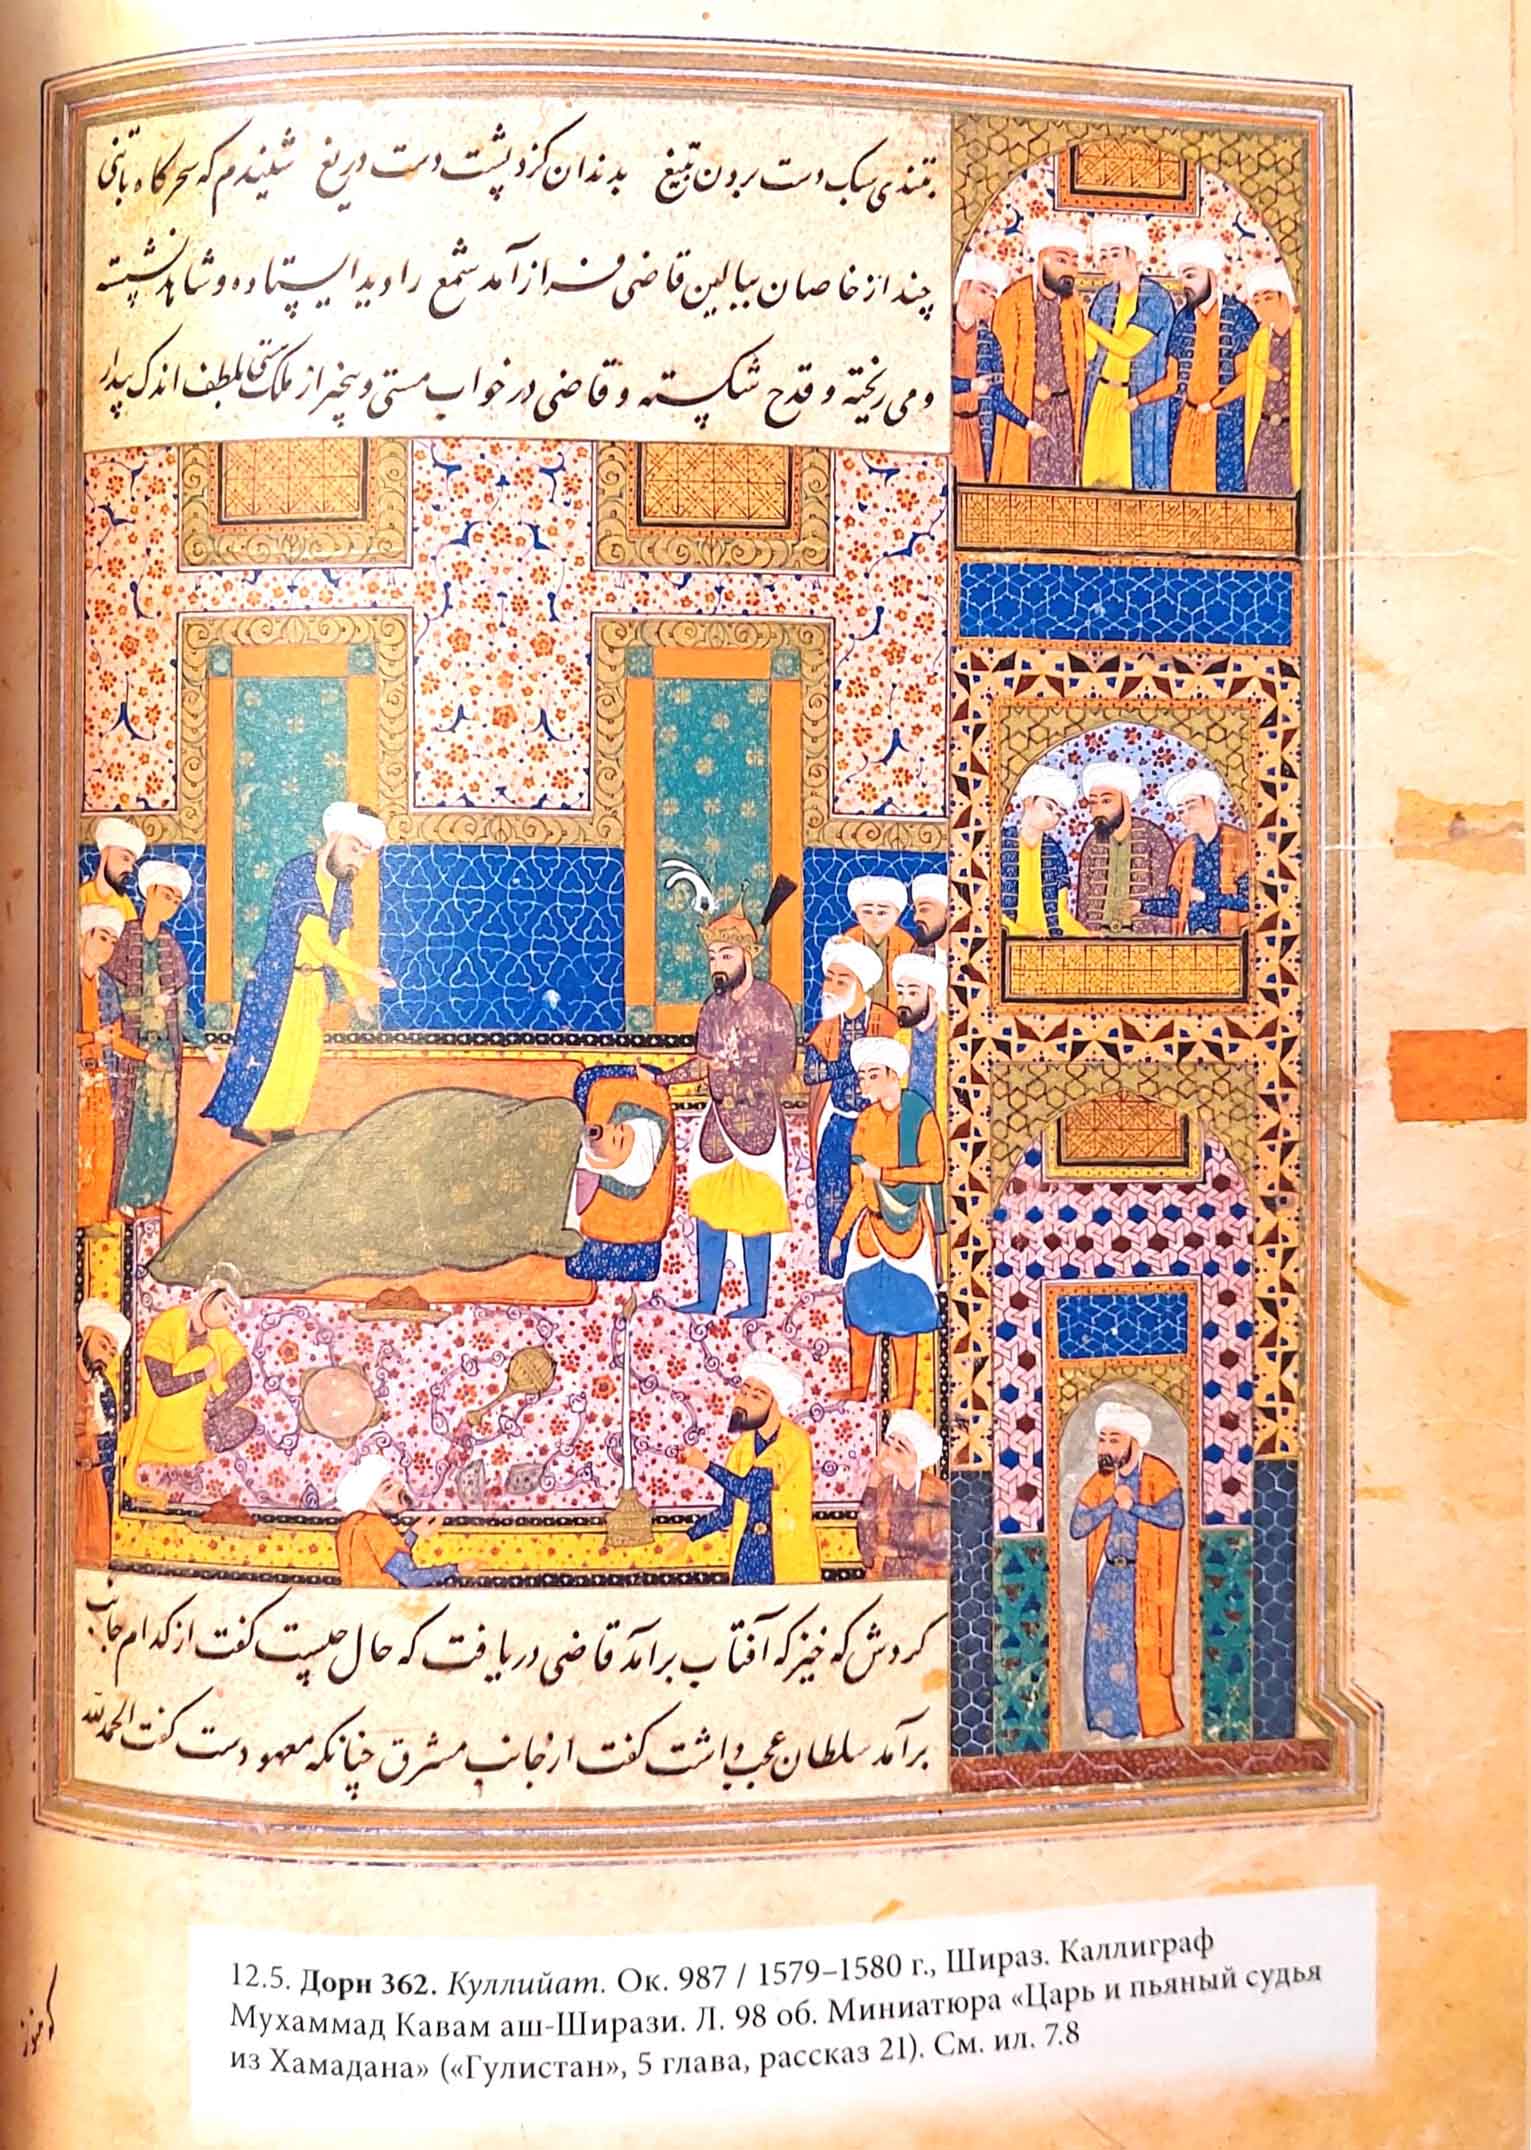 بتندی سبک دست بردن بتیغ بدندان گزد پشت دست دریغ شنیدم که سحرگاه باتنی
چند از خاصان ببالین قاضی فراز آمد شمع را دید ایستاده و شاهد نشسته
و می ریخته و قدح شکسته و قاضی در خواب مستی و بیخبر از ملک هستی بلطف اندک بیدار
کردش که خیز که آفتاب برآمد قاضی دریافت که حال چیست گفت از کدام جانب
برآمد سلطان عجب داشت گفت از جانب مشرق چنانکه معهودست گفت الحمدلله
12.5. Дорн 362. Куллийат. Ок. 987 / 1579–1580 г., Шираз. Каллиграф
Мухаммад Кавам аш-Ширази. Л. 98 об. Миниатюра «Царь и пьяный судья
из Хамадана» («Гулистан», 5 глава, рассказ 21). См. ил. 7.8